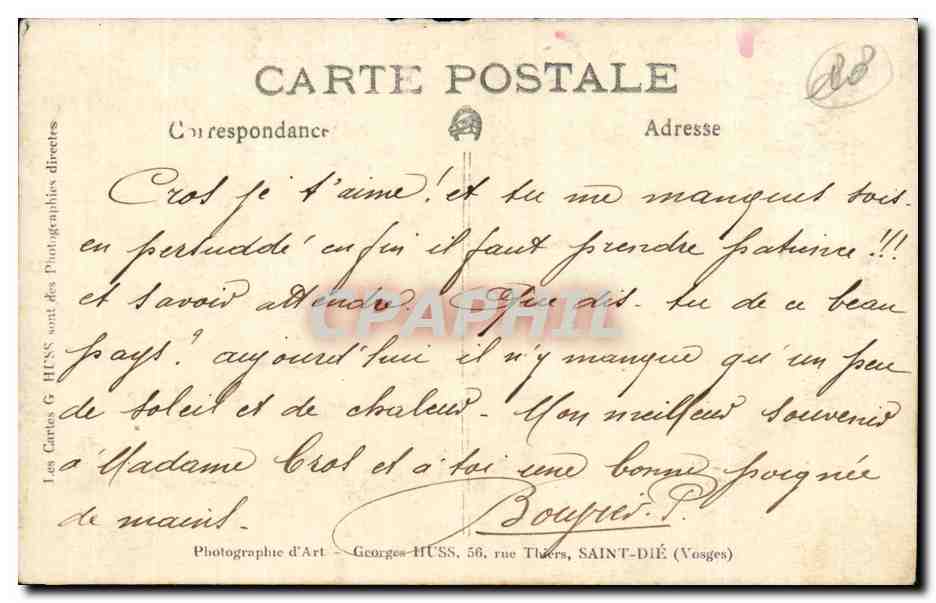 88
CARTE POSTALE
Correspondance
Adresse
Les Cartes G HUSS sont des Photographies directes
Cros je t'aime! et tu me manques sois-
en persuddé enfin il faut prendre patience!!!
et savoir attendre. Que dis-tu de ce beau
pays? aujourd'hui il n'y manque qu'un peu
de soleil et de chaleur- Mon meilleur souvenir
à Madame Cros et à toi une bonne poignée
de mains-
P.
CPAPHIL
Photographie d'Art - Georges HUSS, 56, rue Thiers, SAINT-DIÉ (Vosges)